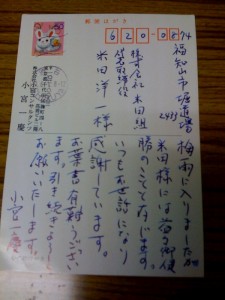 郵便はがき
50
620-0874
福知山市堀直場
2435
株式会社米田組
代表取締役
米田洋一様
小宮一慶
梅雨に入りましたが
米田様には益々御健
勝のことと存じます。
いつもお世話になり
感謝しています。
お葉書有難うござい
ます。引き続きよろしく
お願いいたします。
小宮一慶